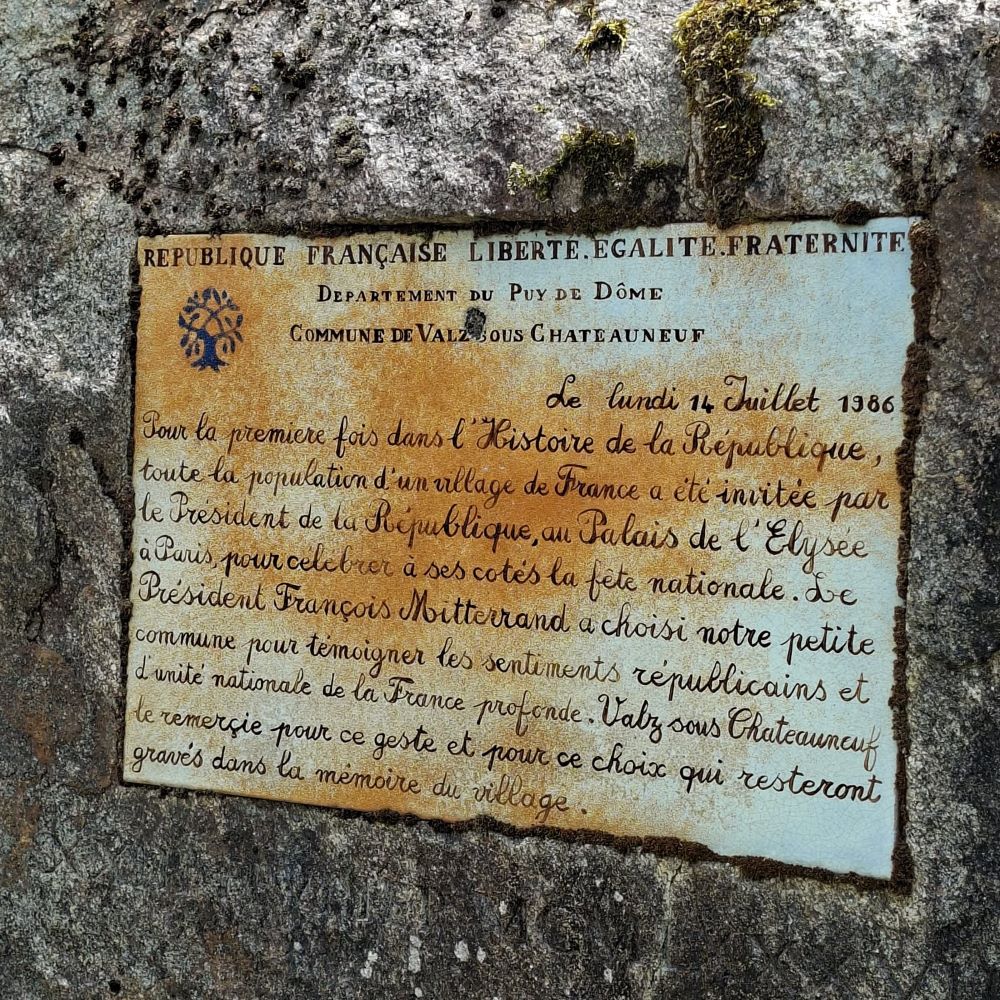 REPUBLIQUE FRANÇAISE LIBERTE.EGALITE.FRATERNITE
DEPARTEMENT DU PUY DE DÔME
COMMUNE DE VALZ SOUS CHATEAUNEUF
Le lundi 14 Juillet 1986
Pour la premiere fois dans l'Histoire de la République,
toute la population d'un village de France a été invitée par
le Président de la République, au Palais de l'Elysée
à Paris, pour celebrer à ses cotés la fête nationale. Le
Président François Mitterrand a choisi notre petite
commune pour témoigner les sentiments républicains et
d'unité nationale de la France profonde. Valz sous Chateauneuf
le remerçie pour ce geste et pour ce choix qui resteront
gravés dans la mémoire du village.